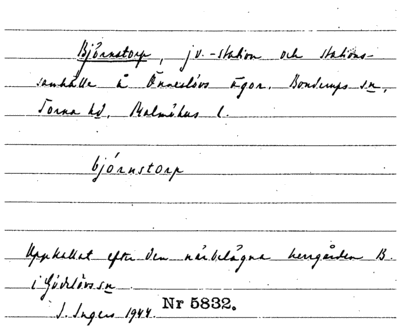 Björnstorp, jv.-station och stations-
samhälle å Önneslövs ägor. Bonderups sn,
Torna hd, Malmöhus l.
björnstorp
Uppkallat efter den närbelägna herrgården B.
i Gödelövs sn
I. Ingers 1944. Nr 5832.